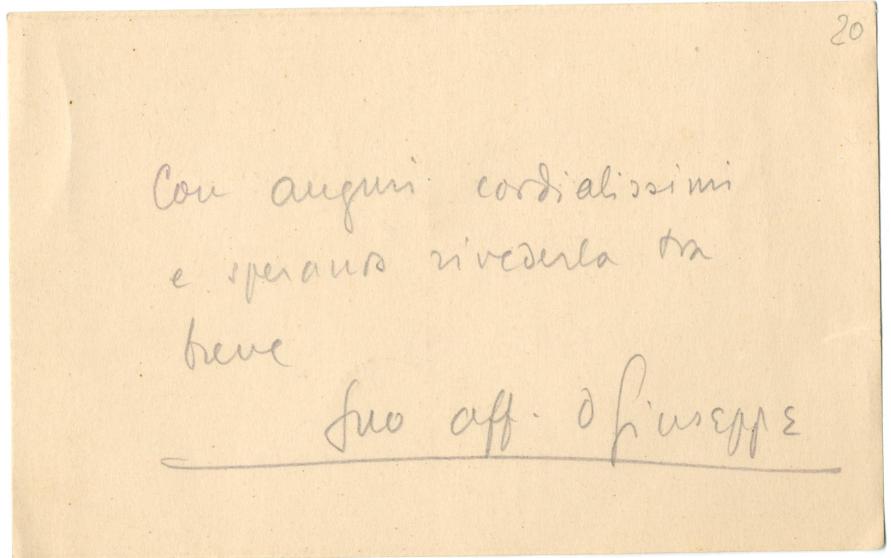 20
Con auguri cordialissimi
e speranza rivederla tra
breve
Suo aff. D Giuseppe